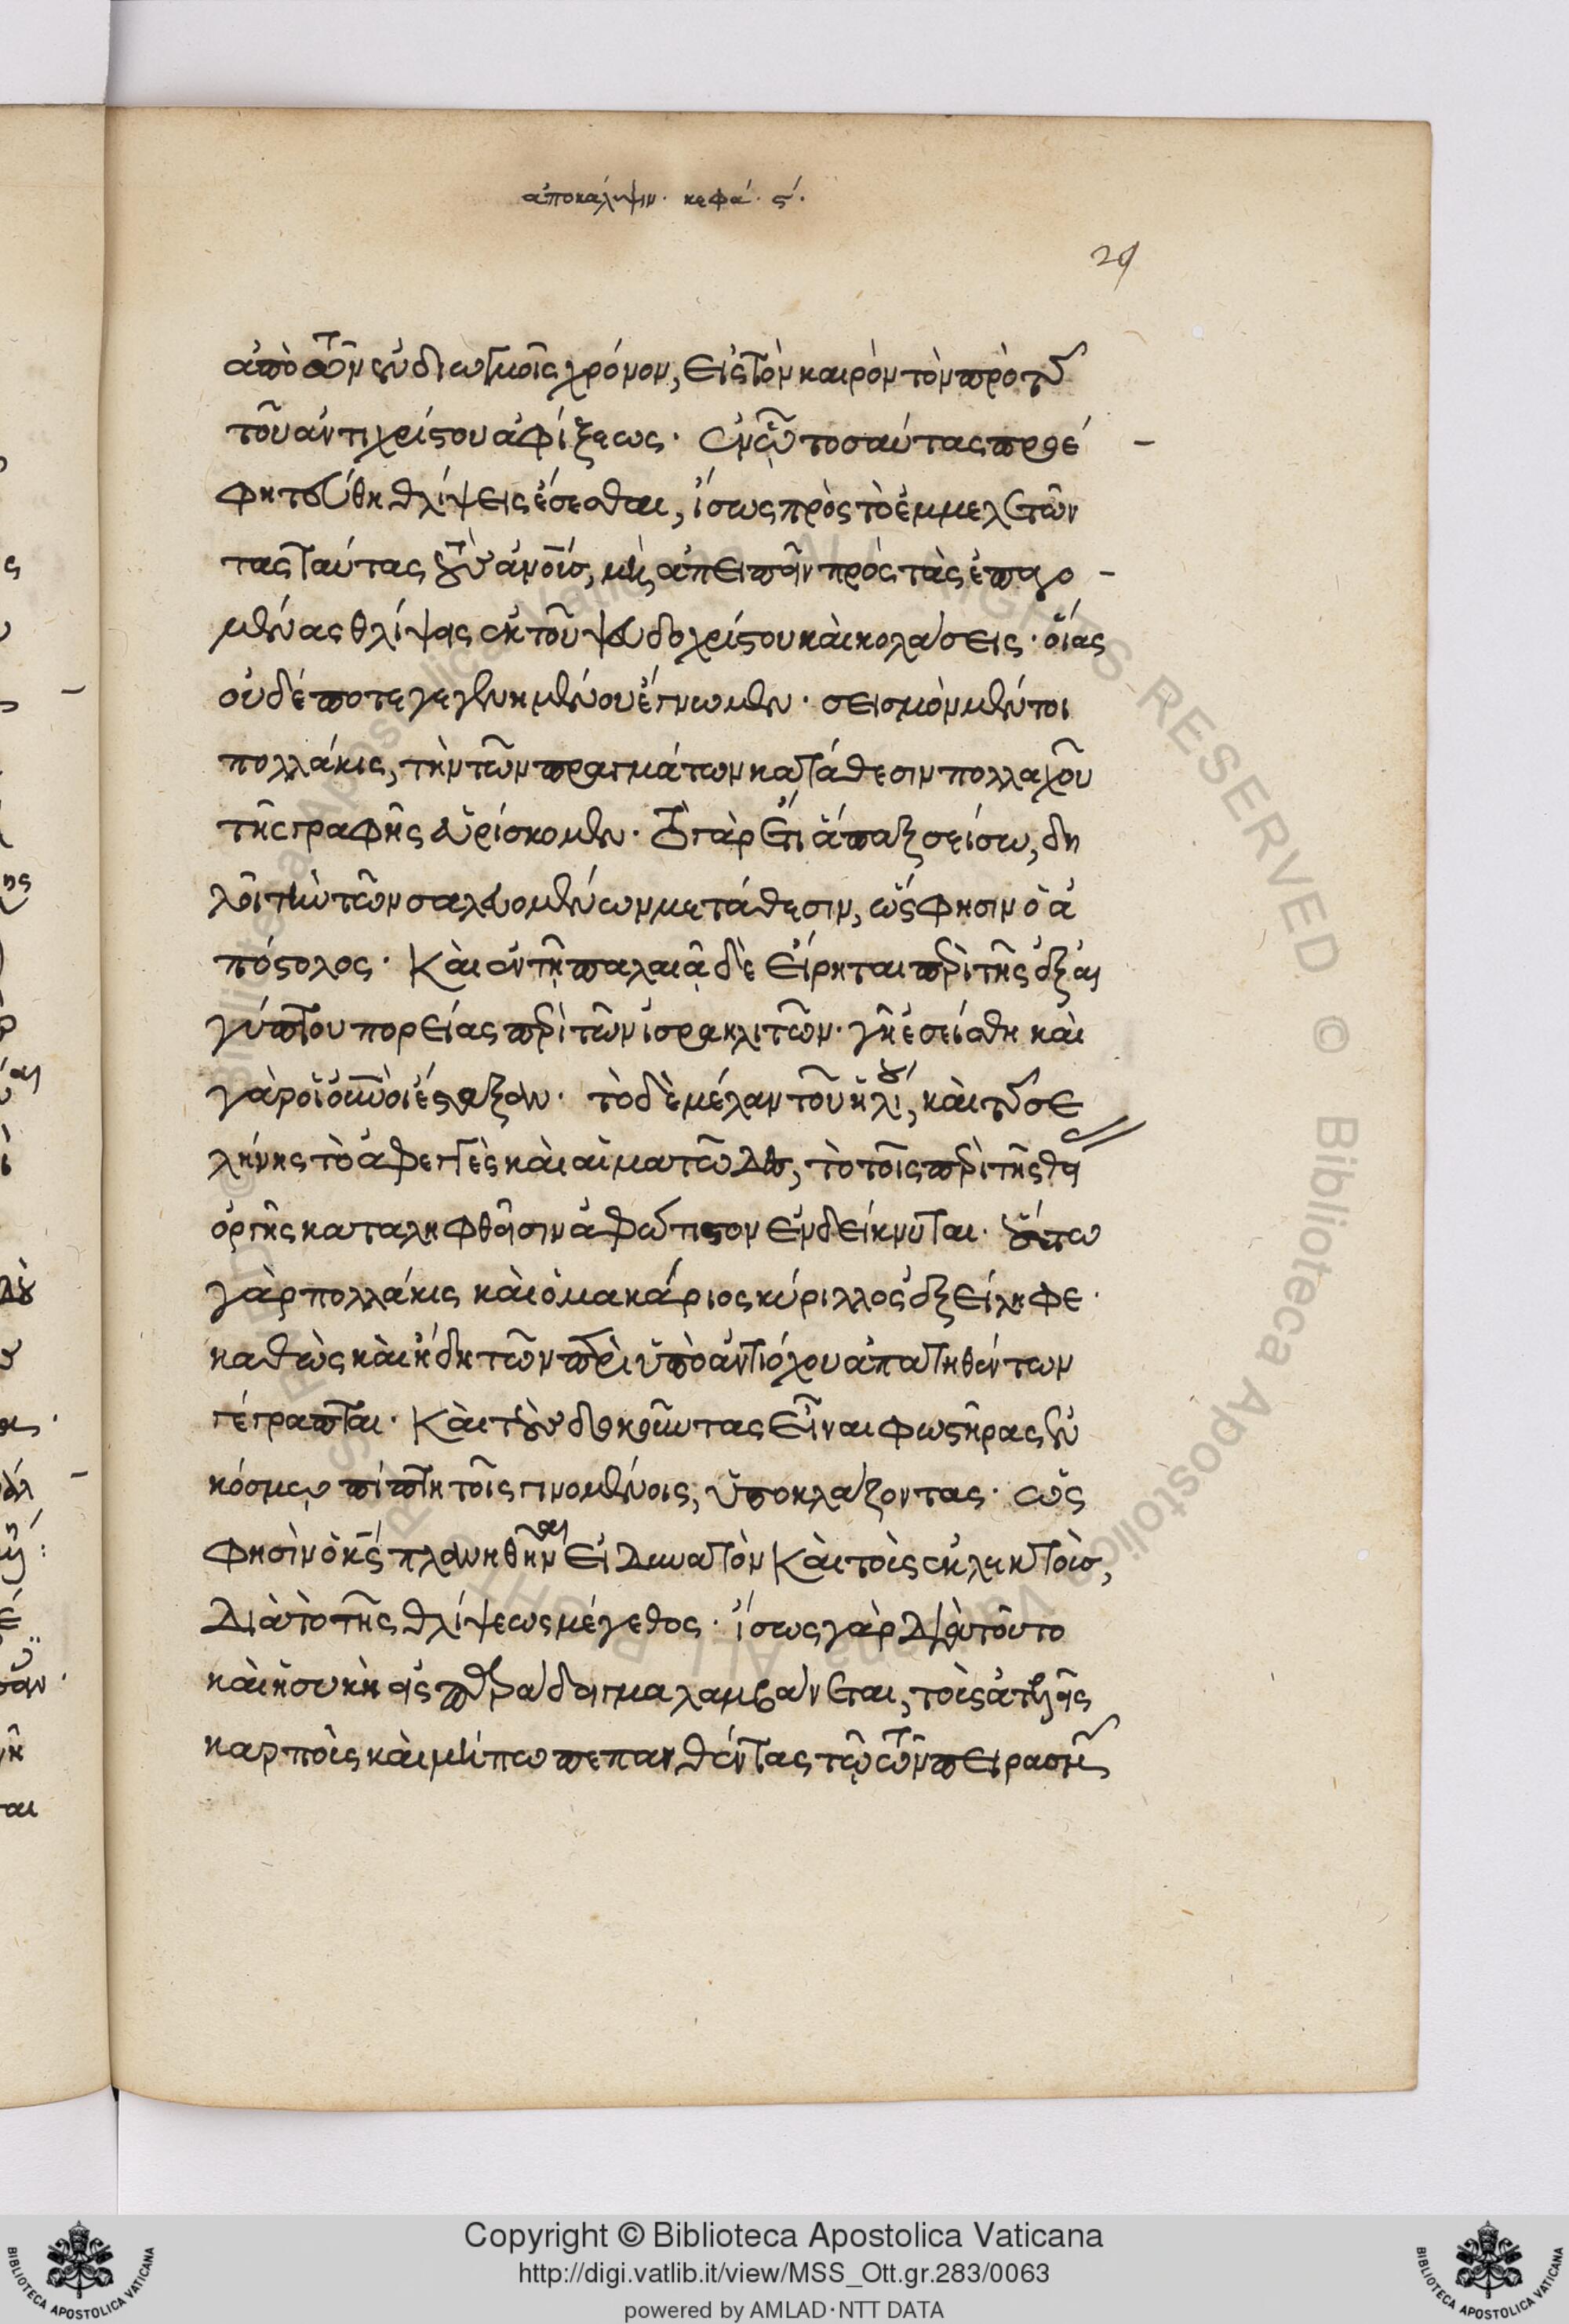 ἀποκάλυψιν. κεφά. ς΄.
29
ἀπὸ τῶν ἐν διωγμοῖς χρόνον, εἰς τὸν καιρὸν τὸν πρὸ τῆς
τοῦ ἀντιχρίστου ἀφίξεως. ἐν ᾧ τοσαύτας προε
φητεύθη θλίψεις ἔσεσθαι, ἴσως πρὸς τὸ ἐμμελετῶν
τας ταύτας τοὺς ἀνους, μὴ ἀπειπεῖν πρὸς τὰς ἐπαγο
μένας θλίψεις ἐκ τοῦ ψευδοχρίστου καὶ κολάσεις. οἵας
οὐδέποτε γεγενημένου ἔγνωμεν. σεισμὸν μέντοι
πολλάκις, τὴν τῶν πραγμάτων κατάθεσιν πολλαχοῦ
τῆς γραφῆς εὑρίσκομεν. τὸ γὰρ ἔτι ἅπαξ σείσω, δη
λοῖ τὴν τῶν σαλευομένων μετάθεσιν, ὥς φησιν ὁ ἀ
πόστολος. Καὶ ἐν τῇ παλαιᾷ δὲ εἴρηται περὶ τῆς ἐξ αἰ
γύπτου πορείας περὶ τῶν ἰσραηλιτῶν. γῆ ἐσείσθη καὶ
γὰρ οἱ οὐνοὶ ἔσταξαν. τὸ δὲ μέλαν τοῦ ἡλίου, καὶ τῆς σε
λήνης τὸ ἀφεγγὲς καὶ αἱματῶδες, τὸ τοῖς περὶ τῆς θεί
ὀργῆς καταληφθεῖσιν ἀφώτιστον ἐνδείκνυται. οὕτω
γὰρ πολλάκις καὶ ὁ μακάριος κύριλλος ἐξείληφε.
καθὼς καὶ ἤδη τῶν περὶ ὑπὸ ἀντιόχου ἀπατηθέντων
γέγραπται. Καὶ τοὺς δοκοῦντας εἶναι φωστῆρας ἐν
κόσμῳ πίπτειν τοῖς γινομένοις, ὑποκλάζοντας. ὥς
φησὶν ὁ κς πλανηθῆναι εἰ δυνατὸν Καὶ τοὺς ἐκλεκτούς,
Διὰ τὸ τῆς θλίψεως μέγεθος. ἴσως γὰρ Διὰ τοῦτο
καὶ ἡ συκῆ εἰς παράδειγμα λαμβάνεται, τοὺς ἀτελεῖς
καρποὺς καὶ μήπω πεπανθέντας τῷ τῶν πειρασμῶν
Copyright © Biblioteca Apostolica Vaticana
http://digi.vatlib.it/view/MSS_Ott.gr.283/0063
powered by AMLAD·NTT DATA